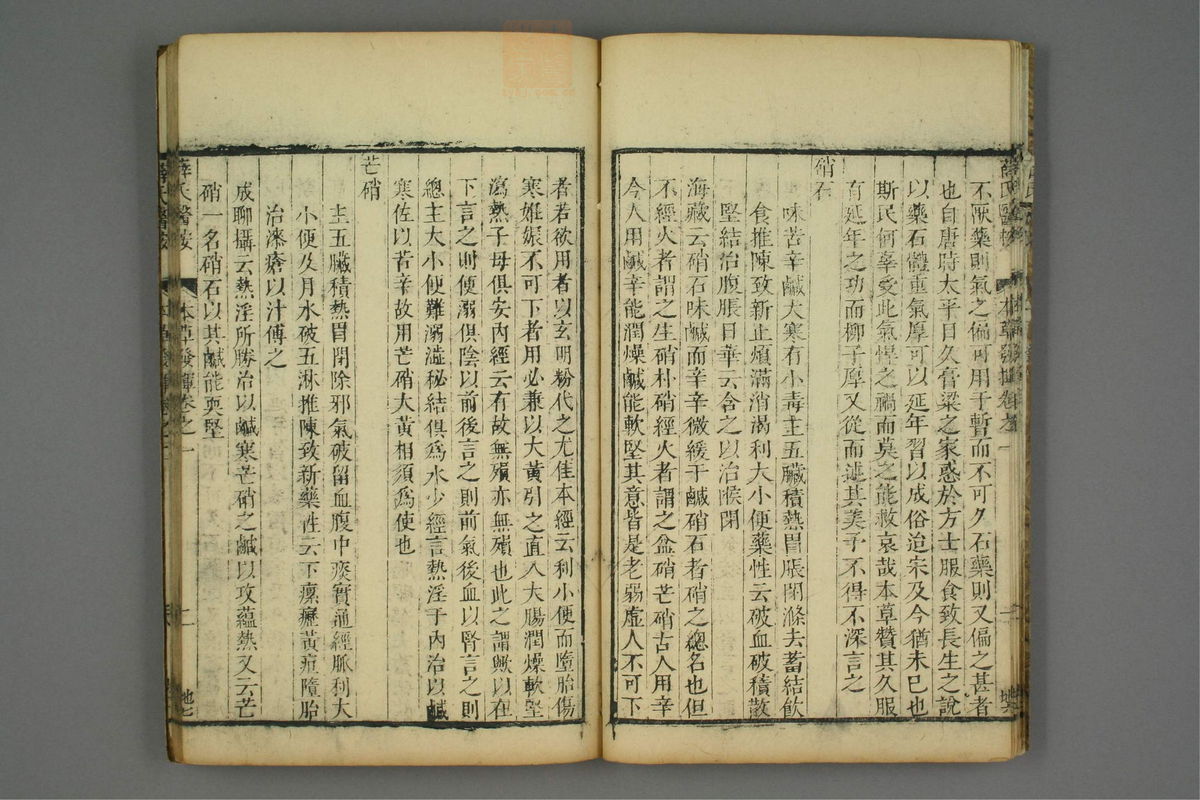 薛氏醫按 本草發揮卷之一
不厭藥則氣之偏可用于暫而不可久石藥則又偏之甚者
也自唐時太平日久膏粱之家惑於方士服食致長生之說
以藥石體重氣厚可以延年習以成俗迨宋及今猶未已也
斯民何辜受此氣悍之禍而莫之能救哀哉本草贊其久服
有延年之功而柳子厚又從而述其美予不得不深言之
硝石
味苦辛鹹大寒有小毒主五臟積熱胃脹閉滌去蓄結飲
食推陳致新止煩滿消渴利大小便藥性云破血破積散
堅結治腹脹日華云含之以治喉閉
海藏云硝石味鹹而辛辛微緩于鹹硝石者硝之總名也但
不經火者謂之生硝朴硝經火者謂之盆硝芒硝古人用辛
今人用鹹辛能潤燥鹹能軟堅其意皆是老弱虛人不可下
者若欲用者以玄明粉代之尤佳本經云利小便而墮胎傷
寒妊娠不可下者用必兼以大黃引之直入大腸潤燥軟堅
瀉熱子母俱安內經云有故無殞亦無殞也此之謂歟以在
下言之則便溺俱陰以前後言之則前氣後血以腎言之則
總主大小便難溺澁秘結俱為水少經言熱淫于內治以鹹
寒佐以苦辛故用芒硝大黃相須為使也
芒硝
主五臟積熱胃閉除邪氣破留血腹中痰實通經脈利大
小便及月水破五淋推陳致新藥性云下瘰癧黃疸墮胎
治漆瘡以汁傅之
成聊攝云熱淫所勝治以鹹寒芒硝之鹹以攻蘊熱又云芒
硝一名硝石以其鹹能耎堅
薛氏醫按 本草發揮卷之一 地七